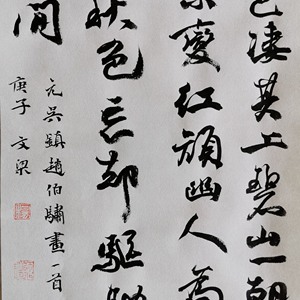 凄其上碧山一朝
變紅頑幽人為
秋色忘却驅
間
元吳鎮趙伯驌畫一首
庚子 文梁